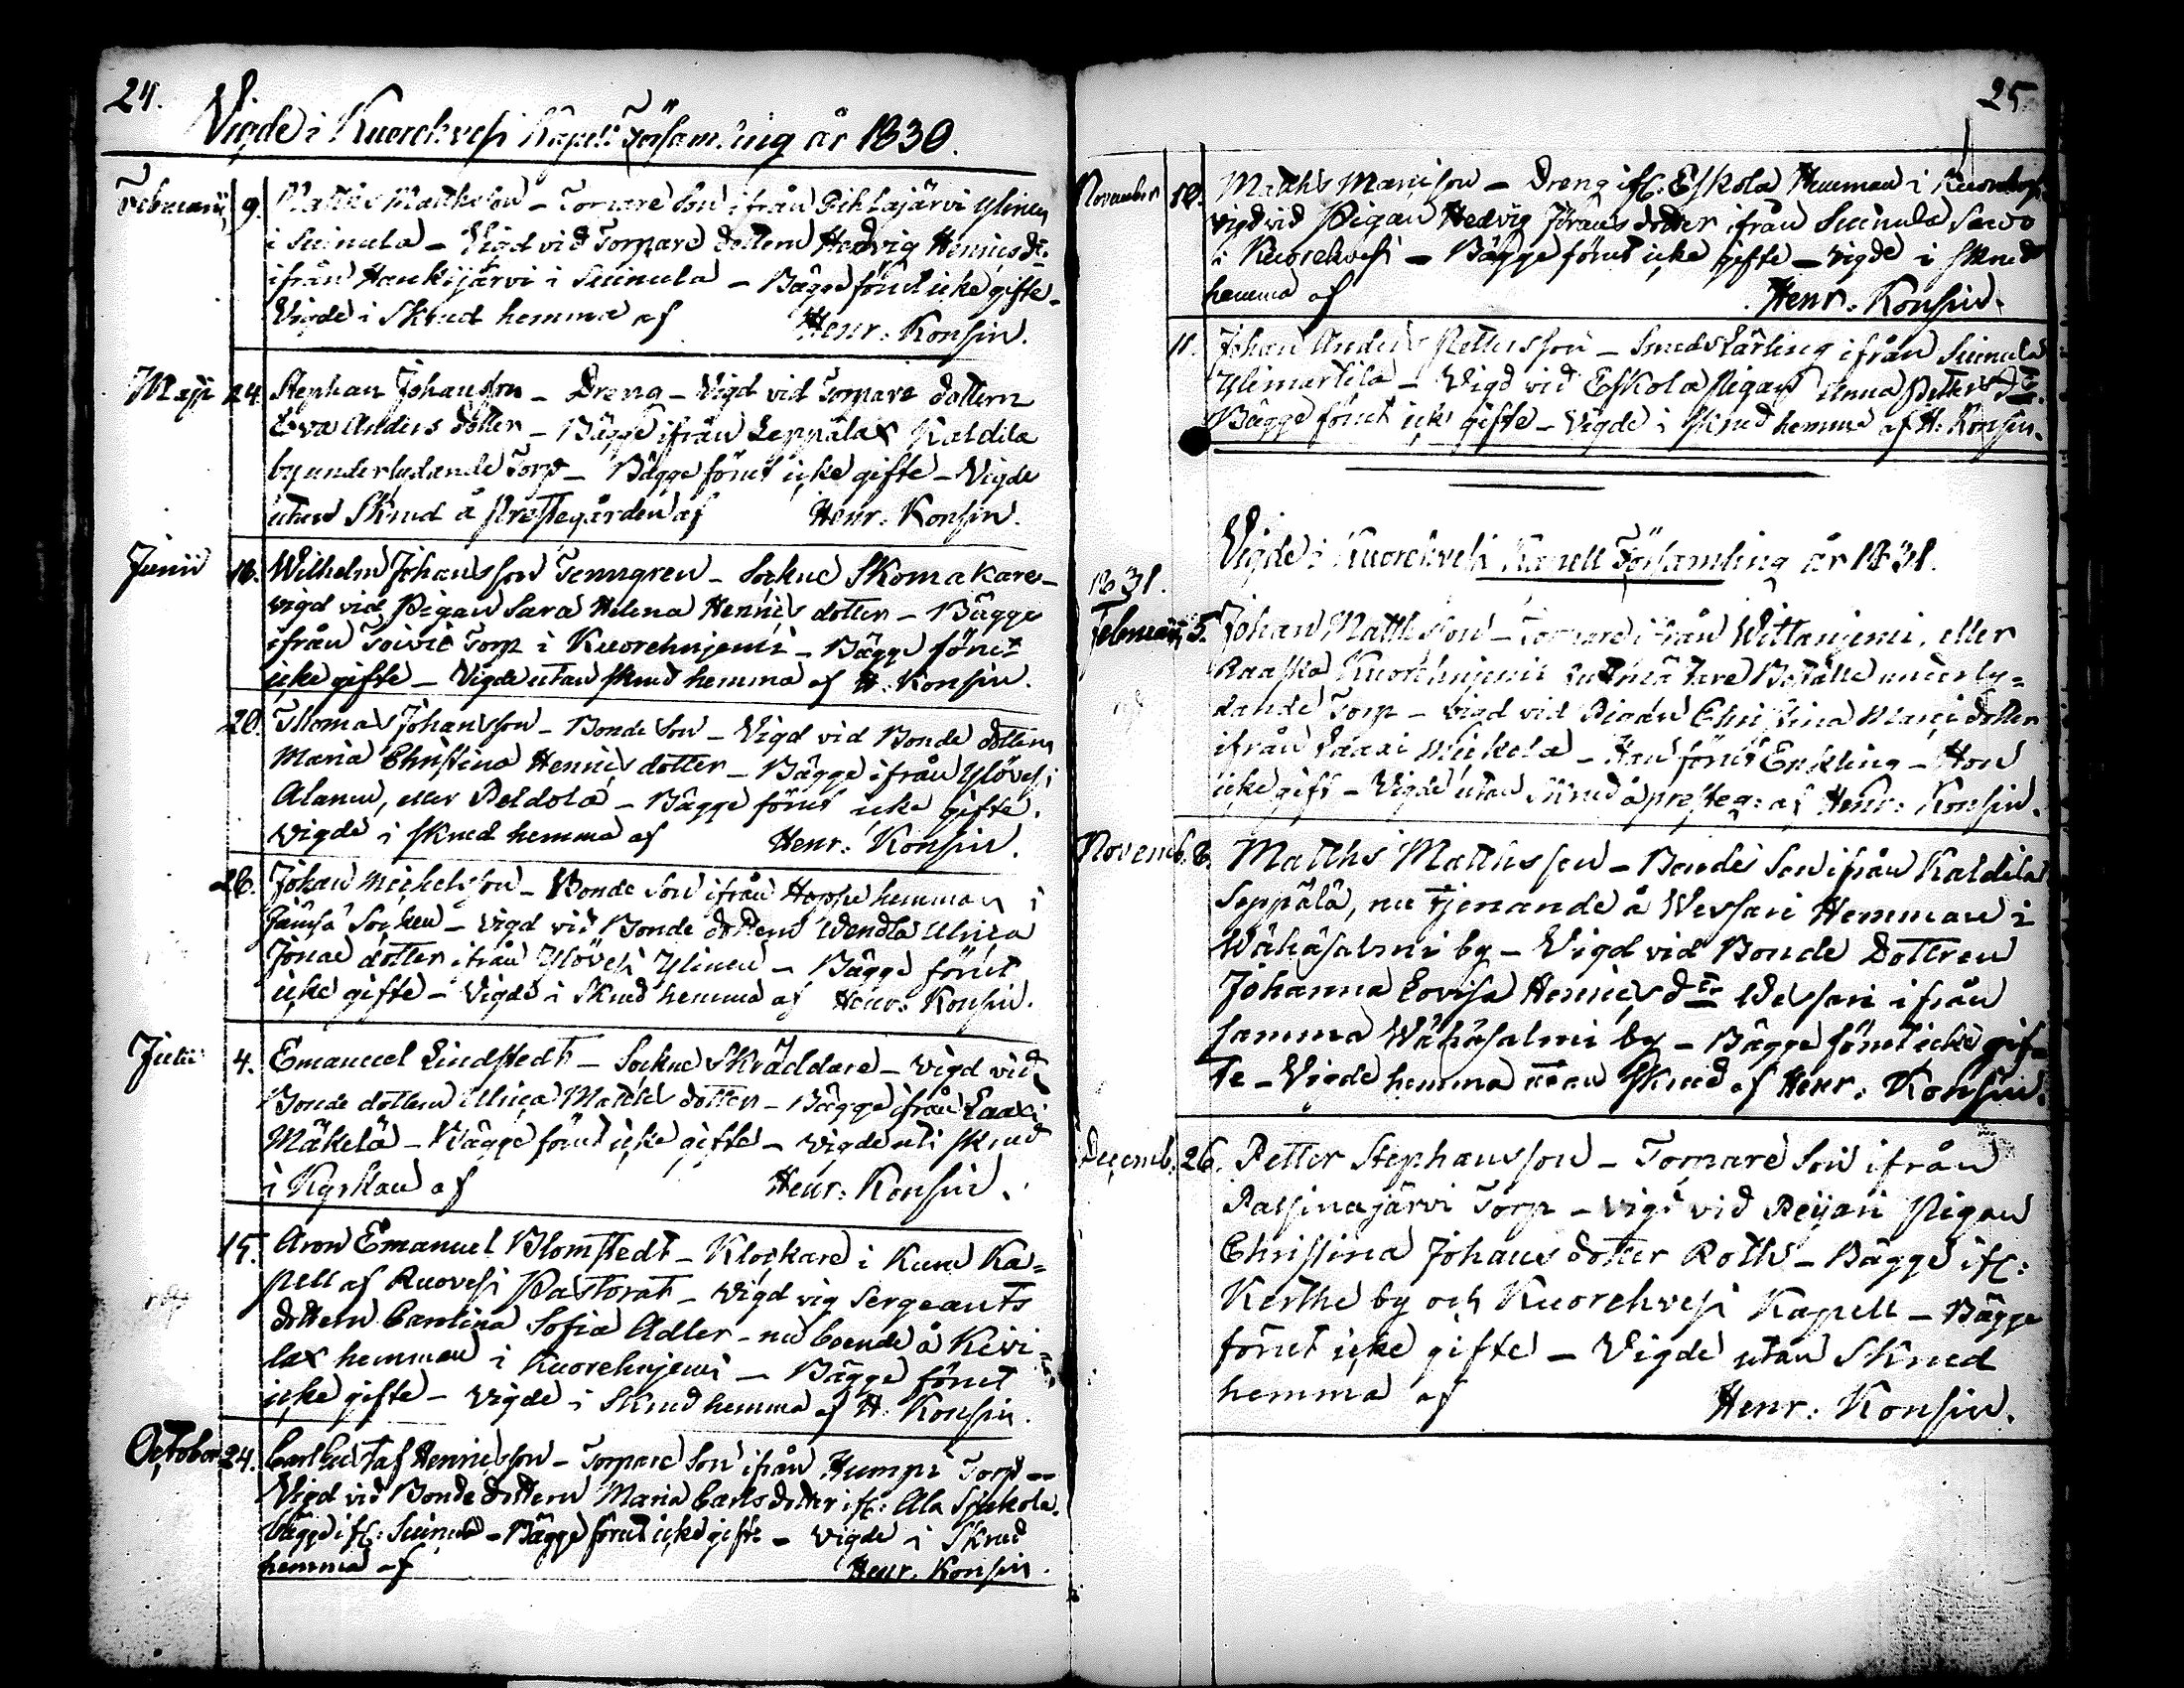 24.
Vigde i Kuorehvesi Kapell Församling år 1830.
Februarii 9. Matths Matthsson – Torpare Son ifrån Pihlajärvi Ylinen
i Suinula – Vigd vid Torpare dottern Hedvig Henricsdr.
ifrån Haukijärvi i Suinula – Bägge förut icke gifte –
Vigde i Skrud hemma af Henr: Konsin.
Maji 24. Stephan Johansson – Dreng – Vigd vid Torpare dottern
Eva Anders dotter – Bägge ifrån Leppälax Kaldila
by underlydande Torp – Bägge förut icke gifte – Vigde
utan Skrud å Prestegården af Henr: Konsin.
Junii 18. Wilhelm Johansson Tenngren – Sockne Skomakare –
vigd vid Pigan Sara Helena Henrics dotter – Bägge
ifrån Toivio Torp i Kuorehnjemi – Bägge förut
icke gifte – Vigde utan skrud hemma af H. Konsin.
20. Thomas Johansson – Bonde Son – Vigd vid Bonde dottern
Maria Christina Henrics dotter – Bägge ifrån Ylövesi
Alanen, eller Peldola – Bägge förut icke gifte.
Vigde i skrud hemma af Henr: Konsin.
26. Johan Michelsson – Bonde Son ifrån Hoppu hemman i
Jämsä Socken – Vigd vid Bonde dottern Wendla Ulrica
Jonae dotter ifrån Ylövesi Ylinen – Bägge förut
icke gifte – Vigde i Skrud hemma af Henr: Konsin.
Julii 4. Emanuel Lindstedt – Sockne Skräddare – Vigd vid
Bonde dottern Ulrica Matths dotter – Bägge ifrån Laaxi
Mäkelä – Bägge förut icke gifte – Vigde uti skrud
i Kyrkan af Henr: Konsin.
15. Aron Emanuel Blomstedt – Klockare i Kuru Ka=
pell af Ruovesi Pastorat – Vigd vig Sergeants
dottern Carolina Sofia Adler – nu boende å Kivi=
lax hemman i Kuorehnjemi – Bägge förut
icke gifte – Vigde i Skrud hemma af H. Konsin.
October 24. Carl Gustaf Henricsson – Torpare Son ifrån Humpi Torp –
Vigd vid Bonde dottern Maria Carls dotter ifr: Ala Sjukola.
bägge ifr: Suinula – Bägge förut icke gifte – Vigde i Skrud
hemma af Henr. Konsin.
25
November 10. Matths Mariæson – Dreng ifr: Eskola Hemman i
vigd vid Pigan Hedvig Jörans dotter ifrån Suinula Savo
i Kuorehvesi – Bägge förut icke gifte – vigde i skrud
hemma af Henr: Konsin.
11. Johan Anders Pettersson – Smeds Lärling ifrån Suinula
Ylimartila – Vigd vid Eskola Pigan Anna Petters Dr.
Bägge förut icke gifte – Vigde i skrud hemma af H. Konsin.
Vigde i Kuorehvesi Kapell Församling år 1831.
1831.
Februarii 5. Johan Matthsson – Torpare ifrån Wittanjemi, eller
Raaska Kuorehnjemi Boställe underly=
dande Torp – vigd vid Pigan Christina Mariædotter
ifrån Laaxi Mickola – Han förut Enkling – Hon
icke gift – Vigde utan skrud å presteg: af Henr: Konsin.
Novemb. 6. Matths Matthsson – Bonde Son ifrån Kaldila
Seppälä, nu tjenande å Wessari Hemman i
Wähäsalmi by – Vigd vid Bonde Dottren
Johanna Lovisa Henrics dr Wessari ifrån
samma Wähäsalmi by – Bägge förut icke gif=
te – Vigde hemma utan skrud af Henr: Konsin.
Decemb. 26. Petter Stephansson – Torpare Son ifrån
Passinajärvi Torp – vigd vid Reijari Pigan
Christina Johans dotter Roth – Bägge ifr:
Kerthe by och Kuorehvesi Kapell – Bägge
förut icke gifte – Vigde utan Skrud
hemma af Henr: Konsin.